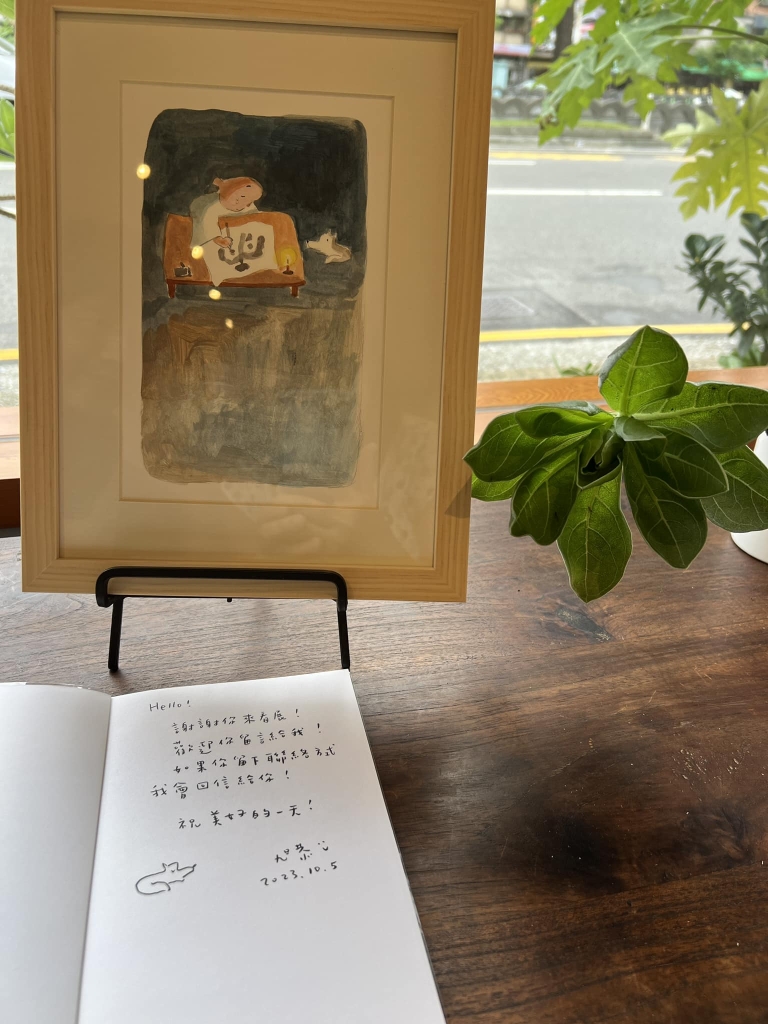 Hello!
謝謝你來看展!
歡迎你留言給我!
如果你留下聯絡方式
我會回信給你!
祝美好的一天!
旭恭:)
2023.10.5